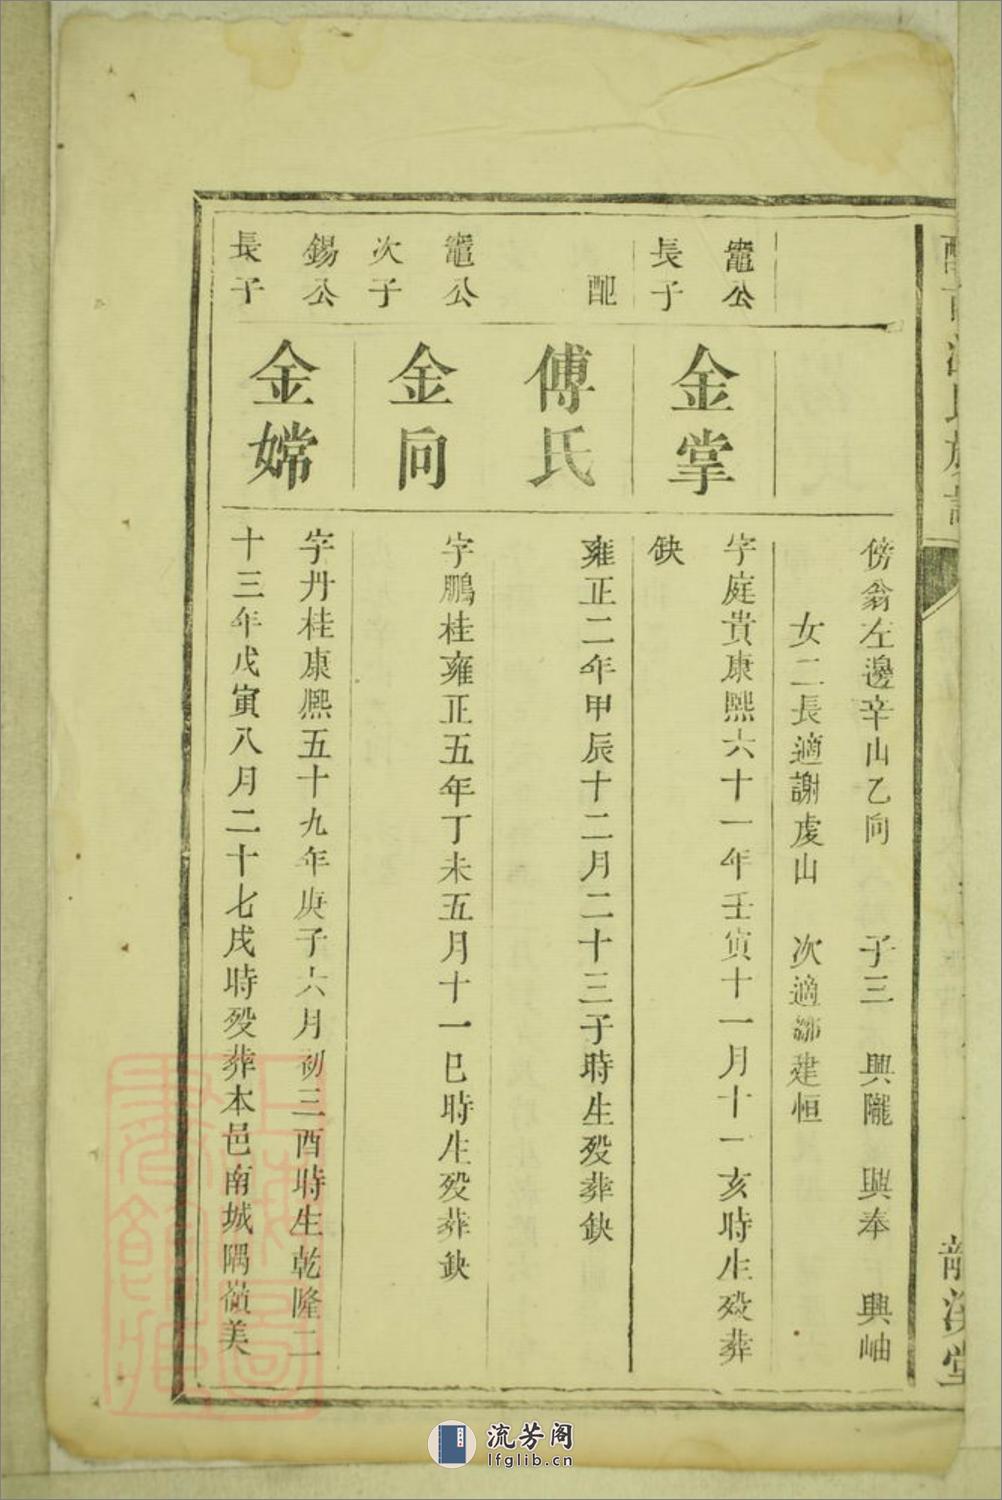 龍溪堂
傍翁左邊辛山乙向 子三 興隴 興奉 興岫
女二長適謝虔山 次適鄒建恒
竈公
長子
金掌
字庭貴康熙六十一年壬寅十一月十一亥時生歿葬
缺
配
傅氏
雍正二年甲辰十二月二十三子時生歿葬缺
竈公
次子
金向
字鵬桂雍正五年丁未五月十一巳時生歿葬缺
錫公
長子
金嫦
字丹桂康熙五十九年庚子六月初三酉時生乾隆二
十三年戊寅八月二十七戌時歿葬本邑南城隅嶺美
流芳阁
lfglib.cn